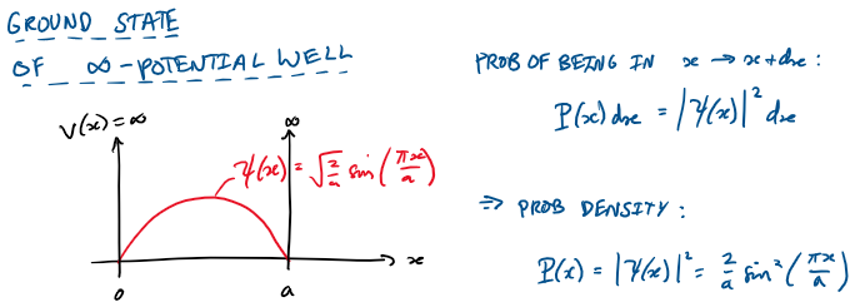 GROUND STATE
OF ∞-POTENTIAL WELL
V(x)=∞
∞
ψ(x) = √(2/a) sin(πx/a)
x
0
a
PROB OF BEING IN x → x+dx:
P(x)dx = |ψ(x)|² dx
⇒ PROB DENSITY:
P(x) = |ψ(x)|² = 2/a sin²(πx/a)